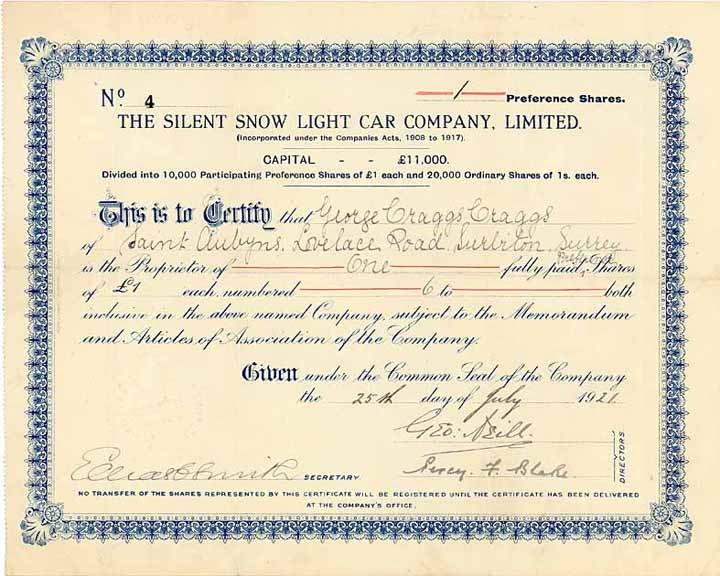 No. 4
1 Preference Shares.
THE SILENT SNOW LIGHT CAR COMPANY, LIMITED.
(Incorporated under the Companies Acts, 1908 to 1917).
CAPITAL - - £11,000.
Divided into 10,000 Participating Preference Shares of £1 each and 20,000 Ordinary Shares of 1s. each.
This is to Certify that George Craggs Craggs
of Saint Aubyns, Lovelace Road Surbiton, Surrey
is the Proprietor of One fully paid Shares
of £1 each, numbered 6 to both
inclusive in the above named Company, subject to the Memorandum
and Articles of Association of the Company.
Given under the Common Seal of the Company
the 25th day of July 1921
Geo:
DIRECTORS
F. Blake
SECRETARY.
NO TRANSFER OF THE SHARES REPRESENTED BY THIS CERTIFICATE WILL BE REGISTERED UNTIL THE CERTIFICATE HAS BEEN DELIVERED
AT THE COMPANY'S OFFICE.